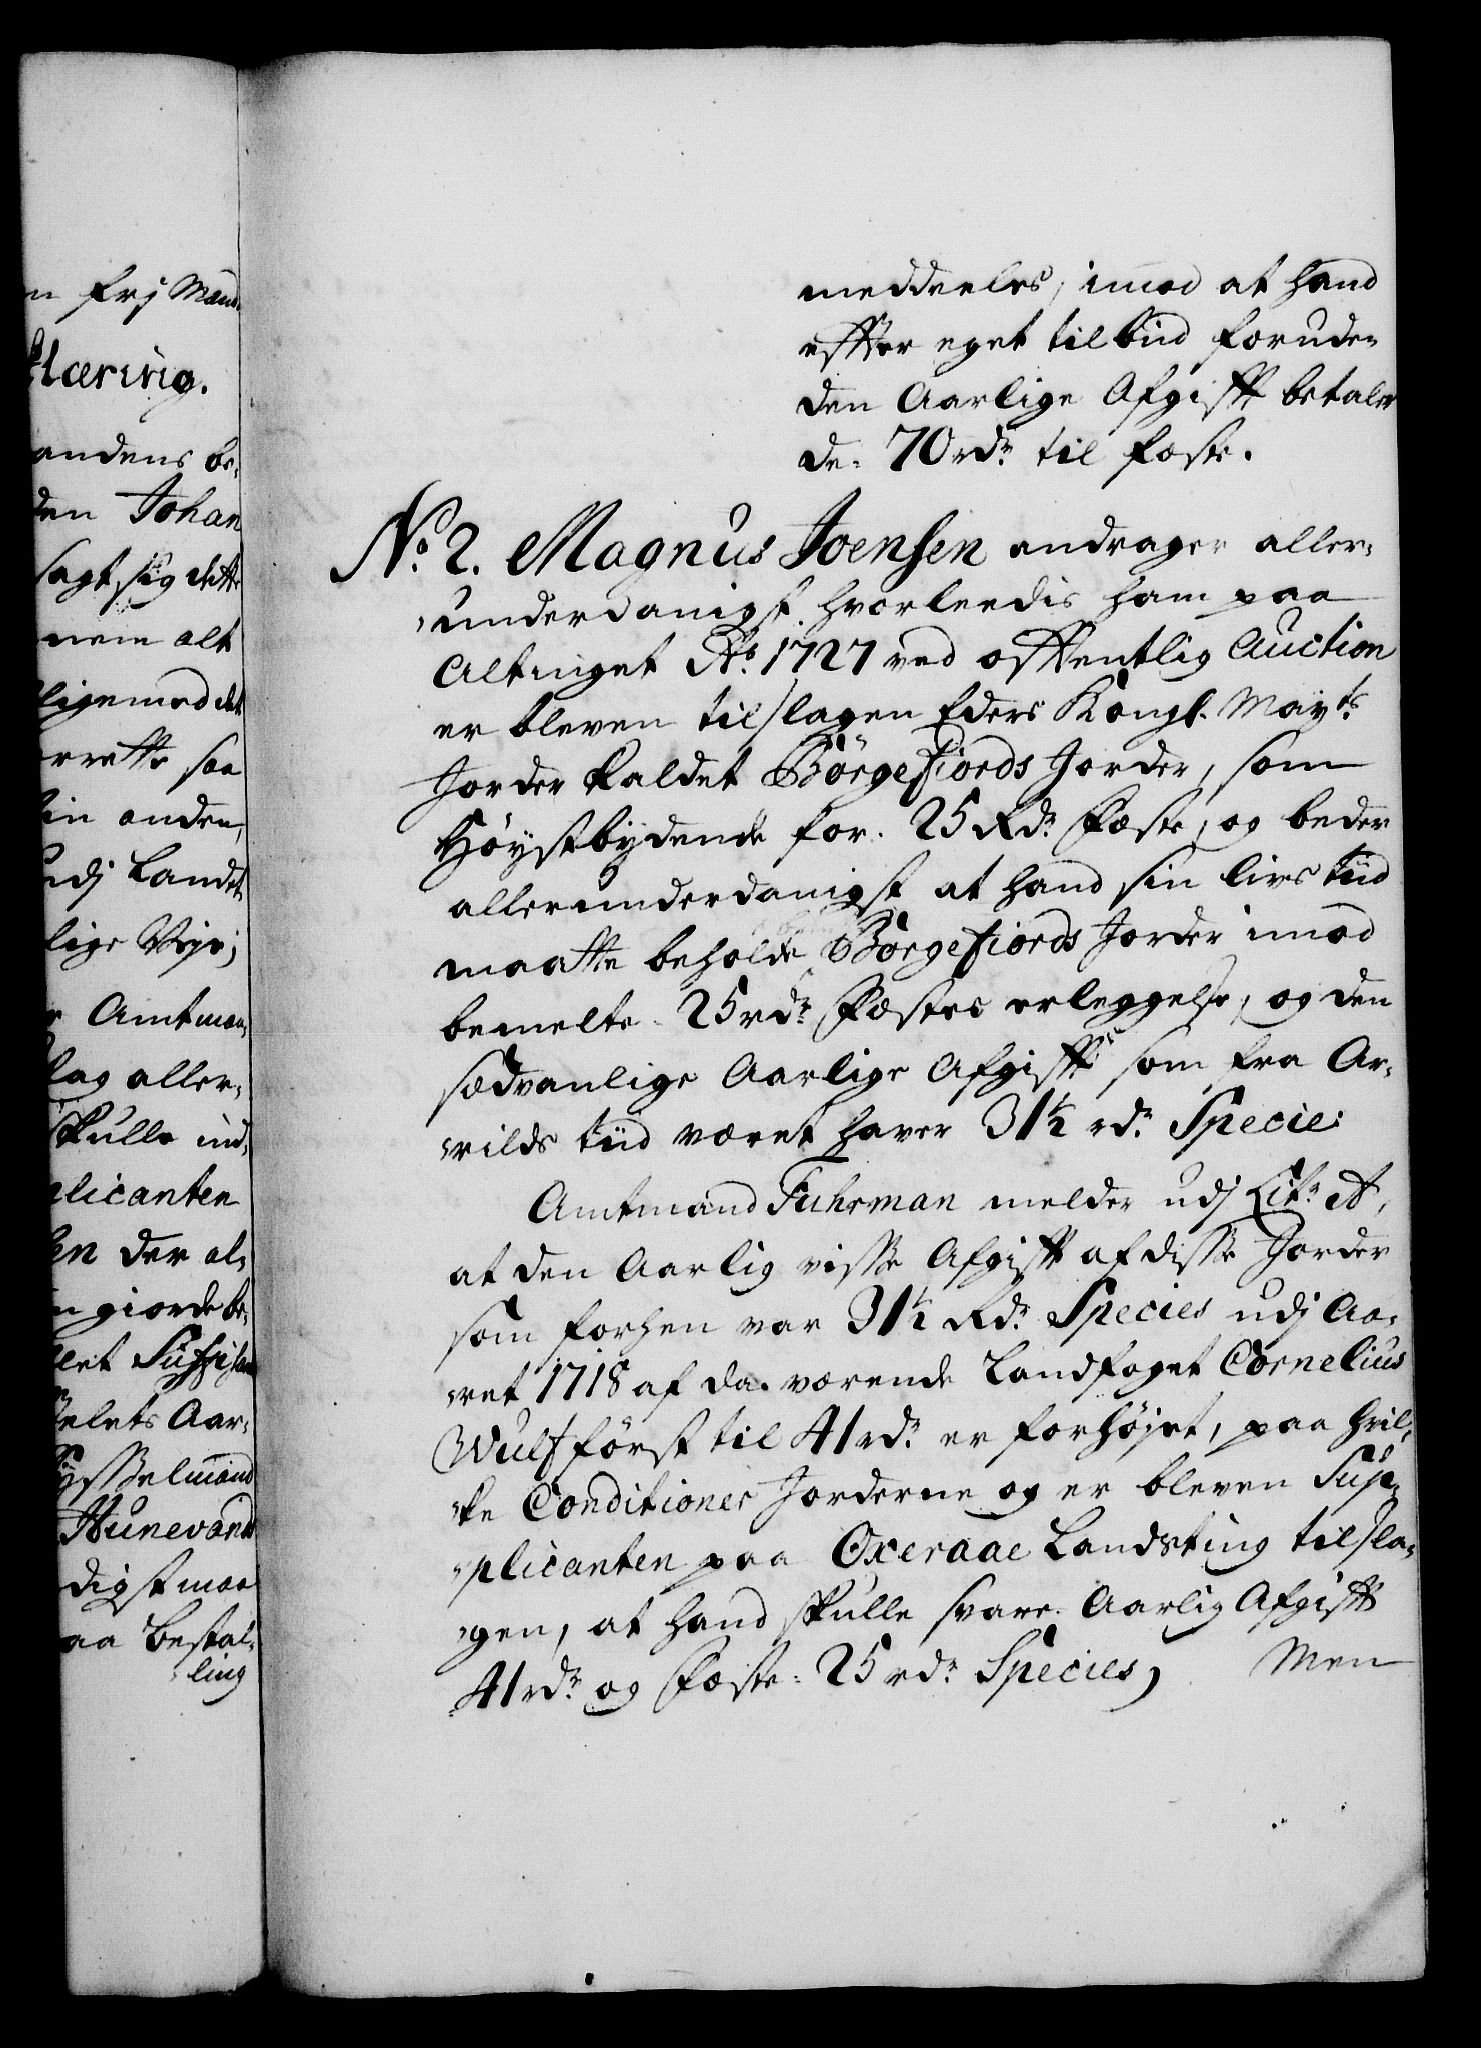 n frj Mand,
klæring.
andens be-
den Johan
sagt sig dette
nem alt
ligemod det
rette saa
in anden,
udj Landet
lige Veje;
r Amtman-
lag aller-
skulle ind-
plicanten
en der al-
n giorde be-
let Suffisan
elets Aar-
ysselmand
Hunevands
digst maa
aa Bestal-
-ling
meddeeles, imod at hand
efter eget tilbud foruden
den Aarlige Afgifft betaler
de: 70 rdr. til fæste.
No. 2. Magnus Joensen andrager aller-
-underdanigst, hvorleedis ham paa
Altinget Ao. 1727 ved offentlig Auction
er bleven tilslagen Eders Kongl. Mayts.
Jorder kaldet Börgefiords Jorder, som
Höystbydende for 25 Rdr. Fæste, og beder
allerunderdanigst at hand sin livs tiid
maatte beholde Börgefiords Jorder imod
bemelte 25 rdr. Fæstes erleggelse, og den
sædvanlige Aarlige Afgiffts som fra Ar-
-rilds tiid været haver 31½ rdr. Specie:
Amtmand Fuhrman melder udj Litr. A,
at den Aarlig visse Afgifft af disse Jorder
som forhen var 31½ Rdr. Species udj Aa-
-ret 1718 af da værende Landfoget Cornelius
Wulf först til 41 rdr. er forhöjet, paa hvil-
-ke Conditioner Jorderne og er bleven Sup-
-plicanten paa Oxeraae Landsting tilsla-
-gen, at hand skulle svare Aarlig Afgifft
41 rdr. og Fæste 25 rdr. Species,
Men